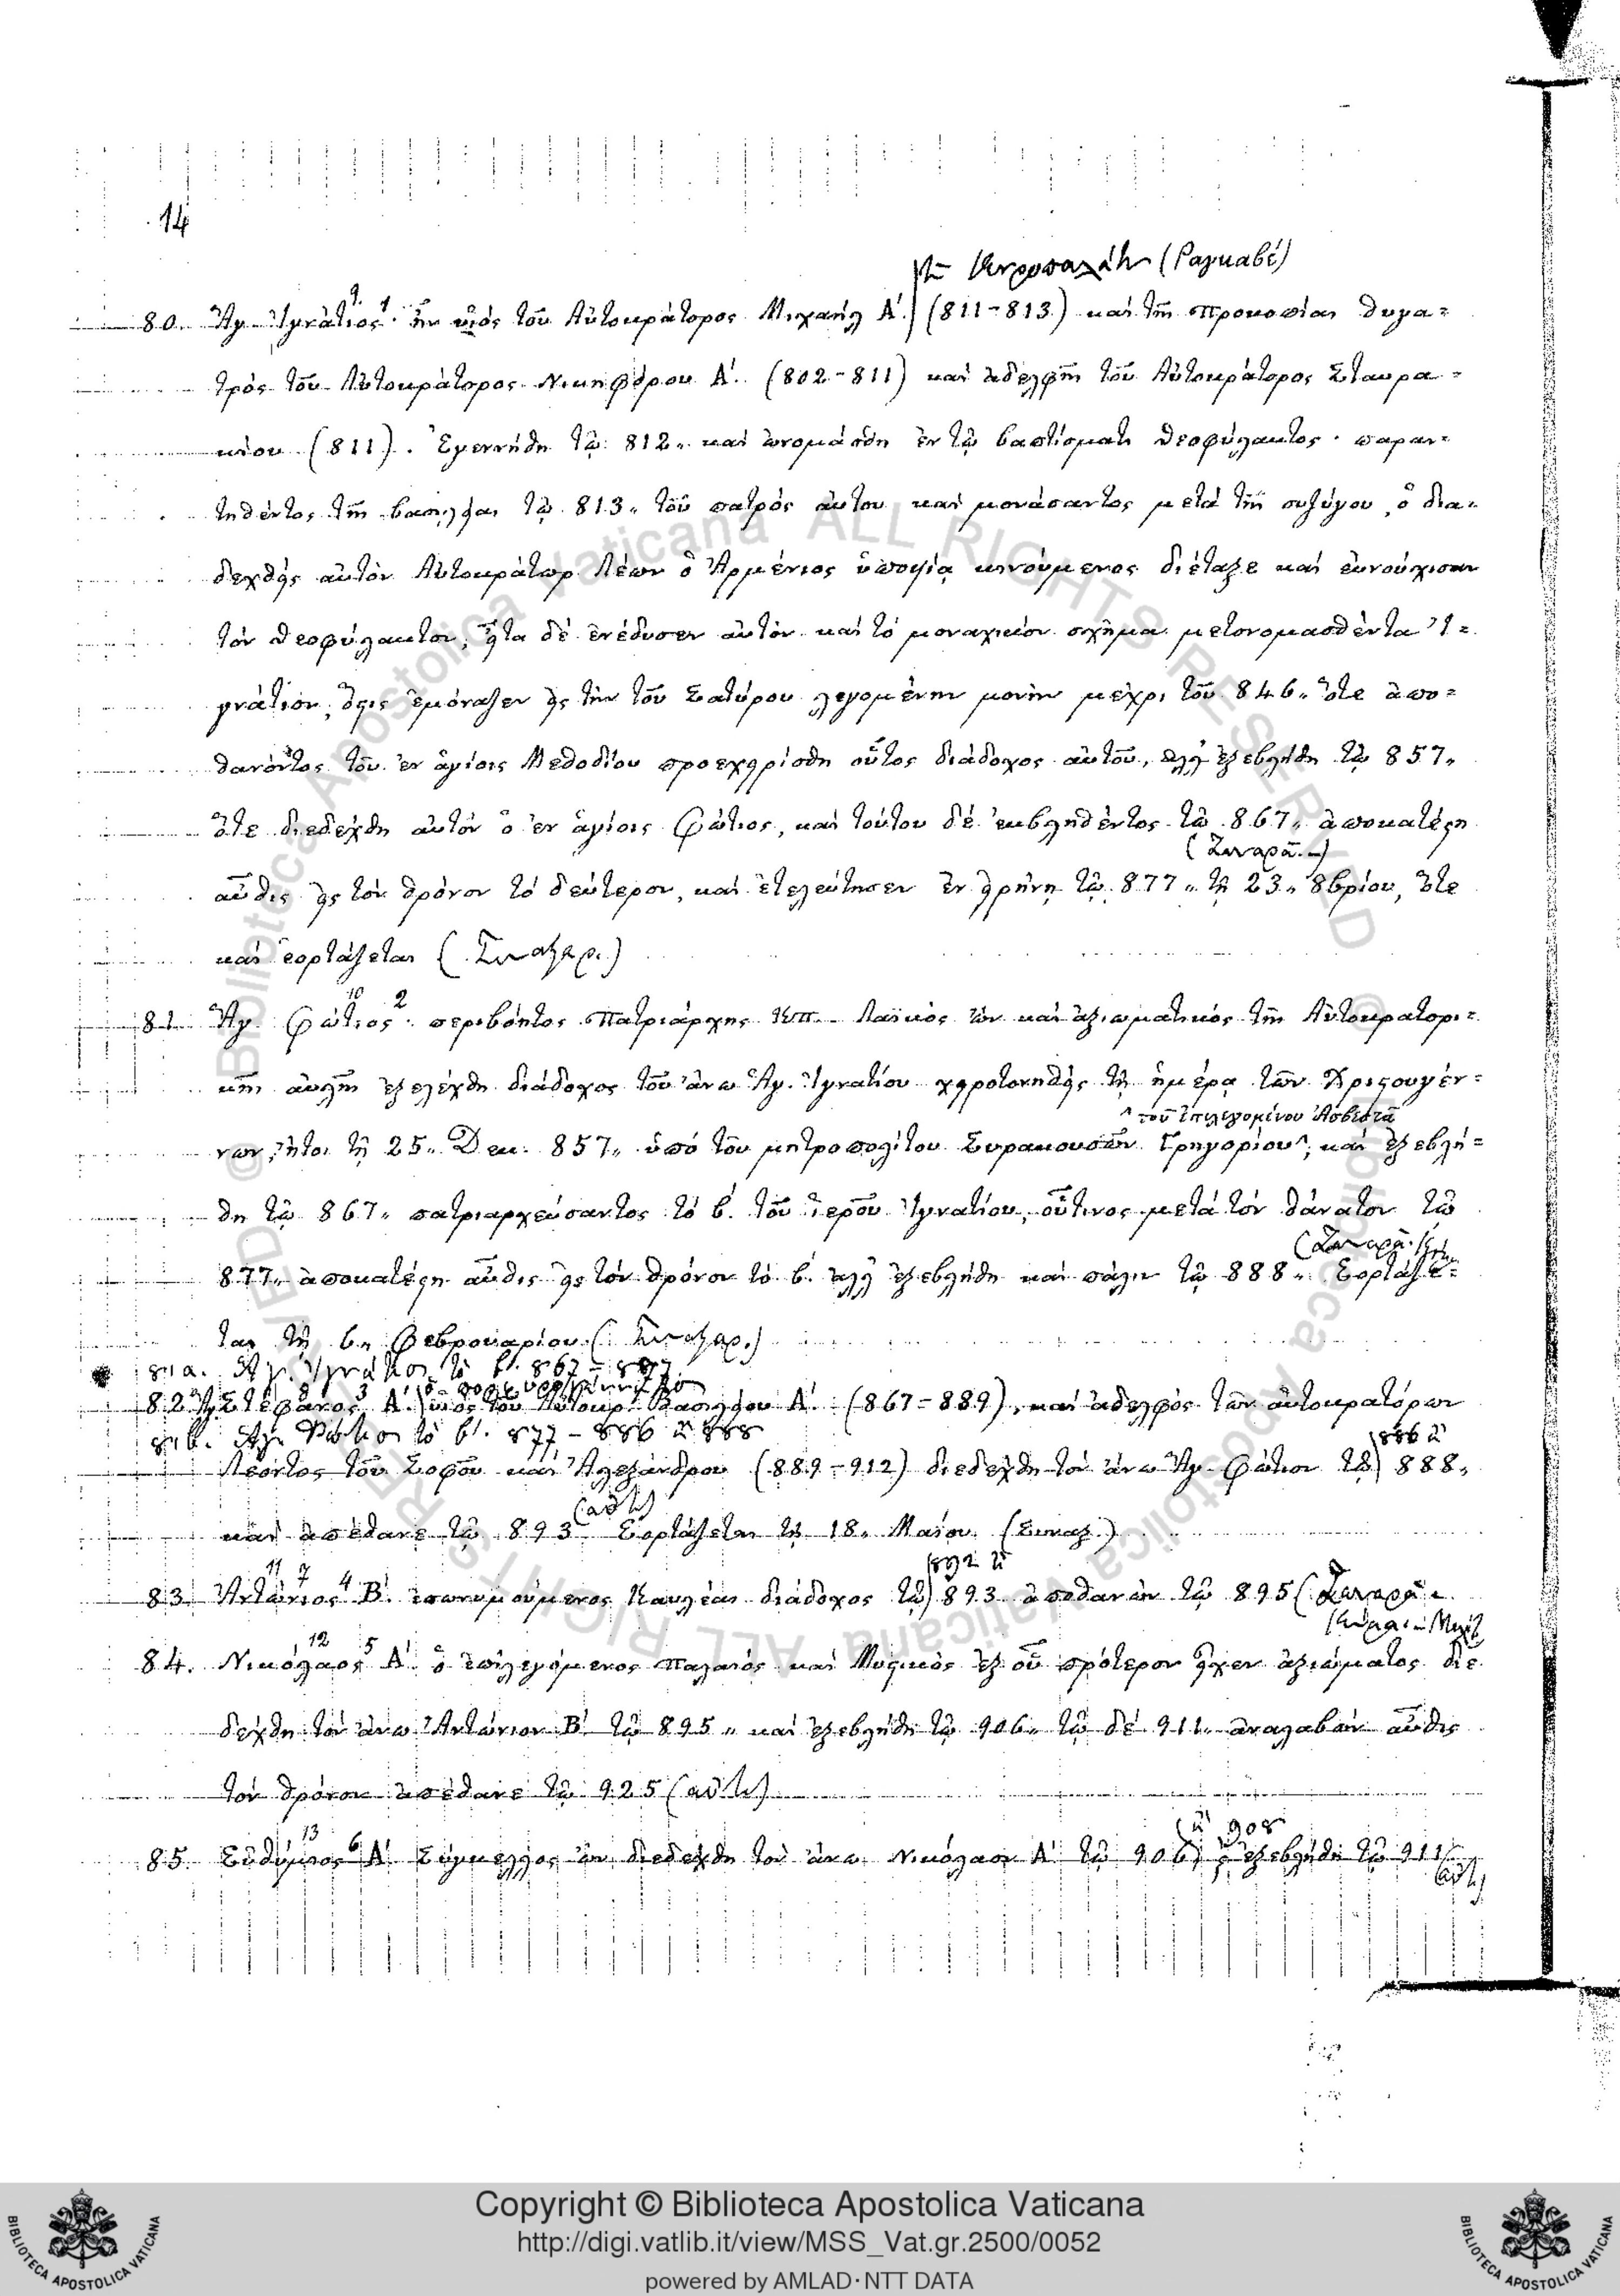 14
τοῦ Κυροπαλάτου (Ραγκαβέ)
80. Ἅγ. Ἰγνάτιος· ἦν υἱός τοῦ Αὐτοκράτορος Μιχαήλ Α΄. (811-813) καί τῆς Προκοπίας θυγα=
τρός τοῦ Αὐτοκράτορος Νικηφόρου Α΄. (802-811) καί ἀδελφῆς τοῦ Αὐτοκράτορος Σταυρα=
κίου (811). Ἐγεννήθη τῷ 812„ καί ὠνομάσθη ἐν τῷ βαπτίσματι Θεοφύλακτος· παραι=
τηθέντος τῆς βασιλείας τῷ 813„ τοῦ πατρός αὐτου καί μονάσαντος μετά τῆς συζύγου, ὁ δια=
δεχθείς αὐτόν Αὐτοκράτωρ Λέων ὁ Ἀρμένιος ὑποψίᾳ κινούμενος διέταξε καί εὐνούχισαν
τόν Θεοφύλακτον, εἶτα δέ ἐνέδυσεν αὐτόν καί τό μοναχικόν σχῆμα μετονομασθέντα Ἰ=
γνάτιον, ὅςις ἐμόναζεν εἰς τήν τοῦ Σατύρου λεγομένην μονήν μεχρι τοῦ 846„ ὅτε ἀπο=
θανόντος τοῦ ἐν ἁγίοις Μεθοδίου προεχειρίσθη οὗτος διάδοχος αὐτοῦ, ἀλλ' ἐξεβλήθη τῷ 857„
ὅτε διεδέχθη αὐτόν ὁ ἐν ἁγίοις Φώτιος, καί τούτου δέ ἐκβληθέντος τῷ 867„ ἀποκατέςη
αὖθις εἰς τόν θρόνον τό δεύτερον, καί ἐτελεύτησεν ἐν εἰρήνῃ τῷ 877„ τῇ 23„ 8βρίου, ὅτε
καί ἑορτάζεται (Συναξαρ.)
10 2
81. Ἅγ. Φώτιος· περιβόητος Πατριάρχης Κπ. Λαϊκός ὤν καί ἀξιωματικός τῆς Αὐτοκρατορι=
κῆς αὐλῆς ἐξελέχθη διάδοχος τοῦ ἄνω Ἁγ. Ἰγνατίου χειροτονηθείς τῇ ἡμέρᾳ τῶν Χριςουγέν=
^ τοῦ ἐπιλεγομένου Ἀσβεστᾶ
νων, ἤτοι τῇ 25„ Δεκ. 857„ ὑπό τοῦ μητροπολίτου Συρακουσῶν Γρηγορίου^, καί ἐξεβλή=
θη τῷ 867„ πατριαρχεύσαντος τό β΄. τοῦ ἱεροῦ Ἰγνατίου, οὗτινος μετά τόν θάνατον τῷ
877„ ἀποκατέςη αὖθις εἰς τόν θρόνον τό β. ἀλλ' ἐξεβλήθη καί πάλιν τῷ 888„ Ἑορτάζε=
ται τῇ 6„ Φεβρουαρίου (Συναξαρ.)
81α. Ἅγ. Ἰγνάτιος τό β΄. 867-877
82 Ἅγ. Στέφανος Α΄. υἱός τοῦ Αὐτοκρ. Βασιλείου Α΄. (867-889), καί ἀδελφός τῶν αὐτοκρατόρων
81β. Ἅγ. Φώτιος τό β΄. 877-886 ἤ 888
886 ἤ
Λέοντος τοῦ Σοφοῦ καί Ἀλεξάνδρου (889-912) διεδέχθη τόν ἄνω Ἅγ. Φώτιον τῷ 888„
(αὐτ)
καί ἀπέθανε τῷ 893. Ἑορτάζεται τῇ 18„ Μαΐου (Συναξ.)
11 7 4
892 ἤ
83. Ἀντώνιος Β΄. ἐπονομούμενος Καυλέας διάδοχος τῷ 893 ἀποθανών τῷ 895
12 5
84. Νικόλαος Α΄. ὁ ἐπιλεγόμενος Παλαιός καί Μυςικός ἐξ οὗ πρότερον εἶχεν ἀξιώματος διε
δέχθη τόν ἄνω Ἀντώνιον Β΄ τῷ 895„ καί ἐξεβλήθη τῷ 906„ τῷ δέ 911„ ἀναλαβών αὖθις
τόν θρόνον ἀπέθανε τῷ 925 (αὐτ)
13 6
(ἤ 908
85. Εὐθύμιος Α΄ Σύγκελλος ὤν διεδέχθη τόν ἄνω Νικόλαον Α΄ τῷ 906, ἐξεβλήθη τῷ 911
(αὐτ)
Copyright © Biblioteca Apostolica Vaticana
http://digi.vatlib.it/view/MSS_Vat.gr.2500/0052
powered by AMLAD·NTT DATA
BIBLIOTECA APOSTOLICA VATICANA
BIBLIOTECA APOSTOLICA VATICANA